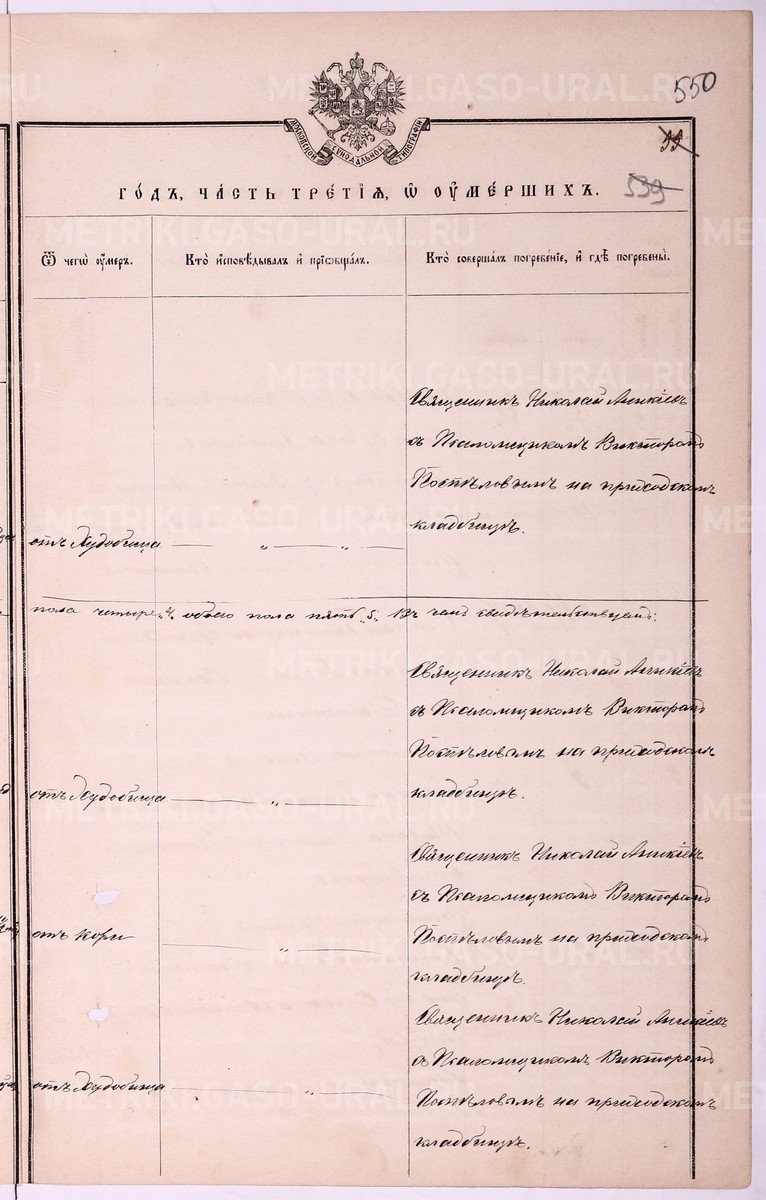 550
МОСКОВСКОЙ СѴНОДАЛЬНОЙ ТИПОГРАФІИ
99
539
ГОДЪ, ЧАСТЬ ТРЕТІЯ, Ѡ ОУМЕРШИХЪ.
Ѿ чегѡ оумеръ.
Кто исповѣдывалъ и пріѡбщалъ.
Кто совершалъ погребеніе, и гдѣ погребены.
Священникъ Николай Аникіевъ
съ Псаломщикомъ Викторомъ
Поспѣловымъ на приходскомъ
кладбищѣ.
отъ Худобища — „ — „ —
пола четыре „4„ обоего пола пять „5„ Въ чемъ свидѣтельствуемъ:
Священникъ Николай Аникіевъ
съ Псаломщикомъ Викторомъ
Поспѣловымъ на приходскомъ
кладбищѣ.
отъ Худобища — „ —
Священникъ Николай Аникіевъ
съ Псаломщикомъ Викторомъ
отъ Кори — „ —
Поспѣловымъ на приходскомъ
кладбищѣ.
Священникъ Николай Аникіевъ
съ Псаломщикомъ Викторомъ
отъ Худобища — „ —
Поспѣловымъ на приходскомъ
кладбищѣ.
METRIKI.GASO-URAL.RU